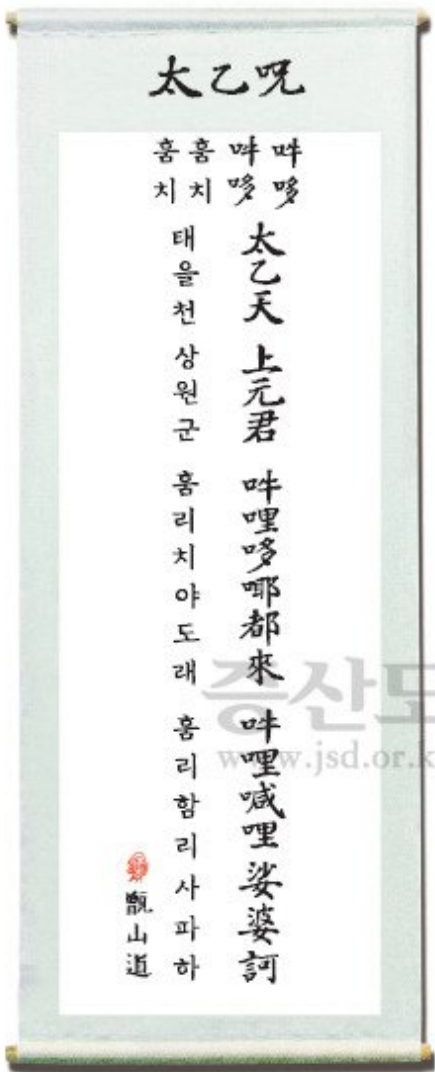 太乙呪
吽哆
吽哆
훔치
훔치
太乙天 上元君 吽哩哆㖿都來 吽哩喊哩娑婆訶
태을천 상원군 훔리치야도래 훔리함리사파하
甑山道
증산도
www.jsd.or.k